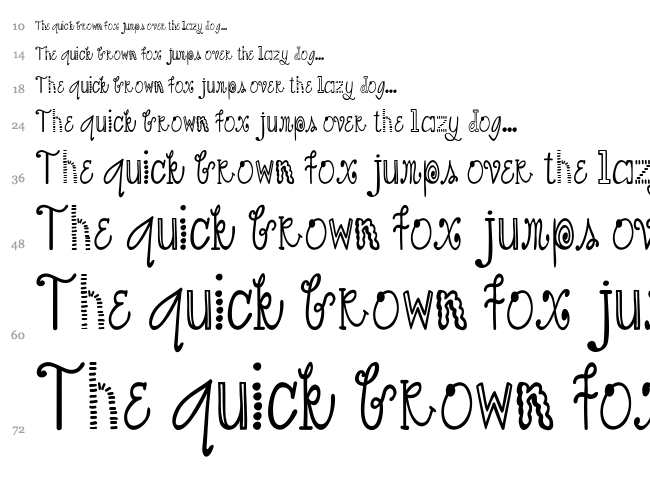 10 The quick brown fox jumps over the lazy dog...
14 The quick brown fox jumps over the lazy dog...
18 The quick brown fox jumps over the lazy dog...
24 The quick brown fox jumps over the lazy dog...
36 The quick brown fox jumps over the laz
48 The quick brown fox jumps ov
60 The quick brown fox ju
72 The quick brown fo